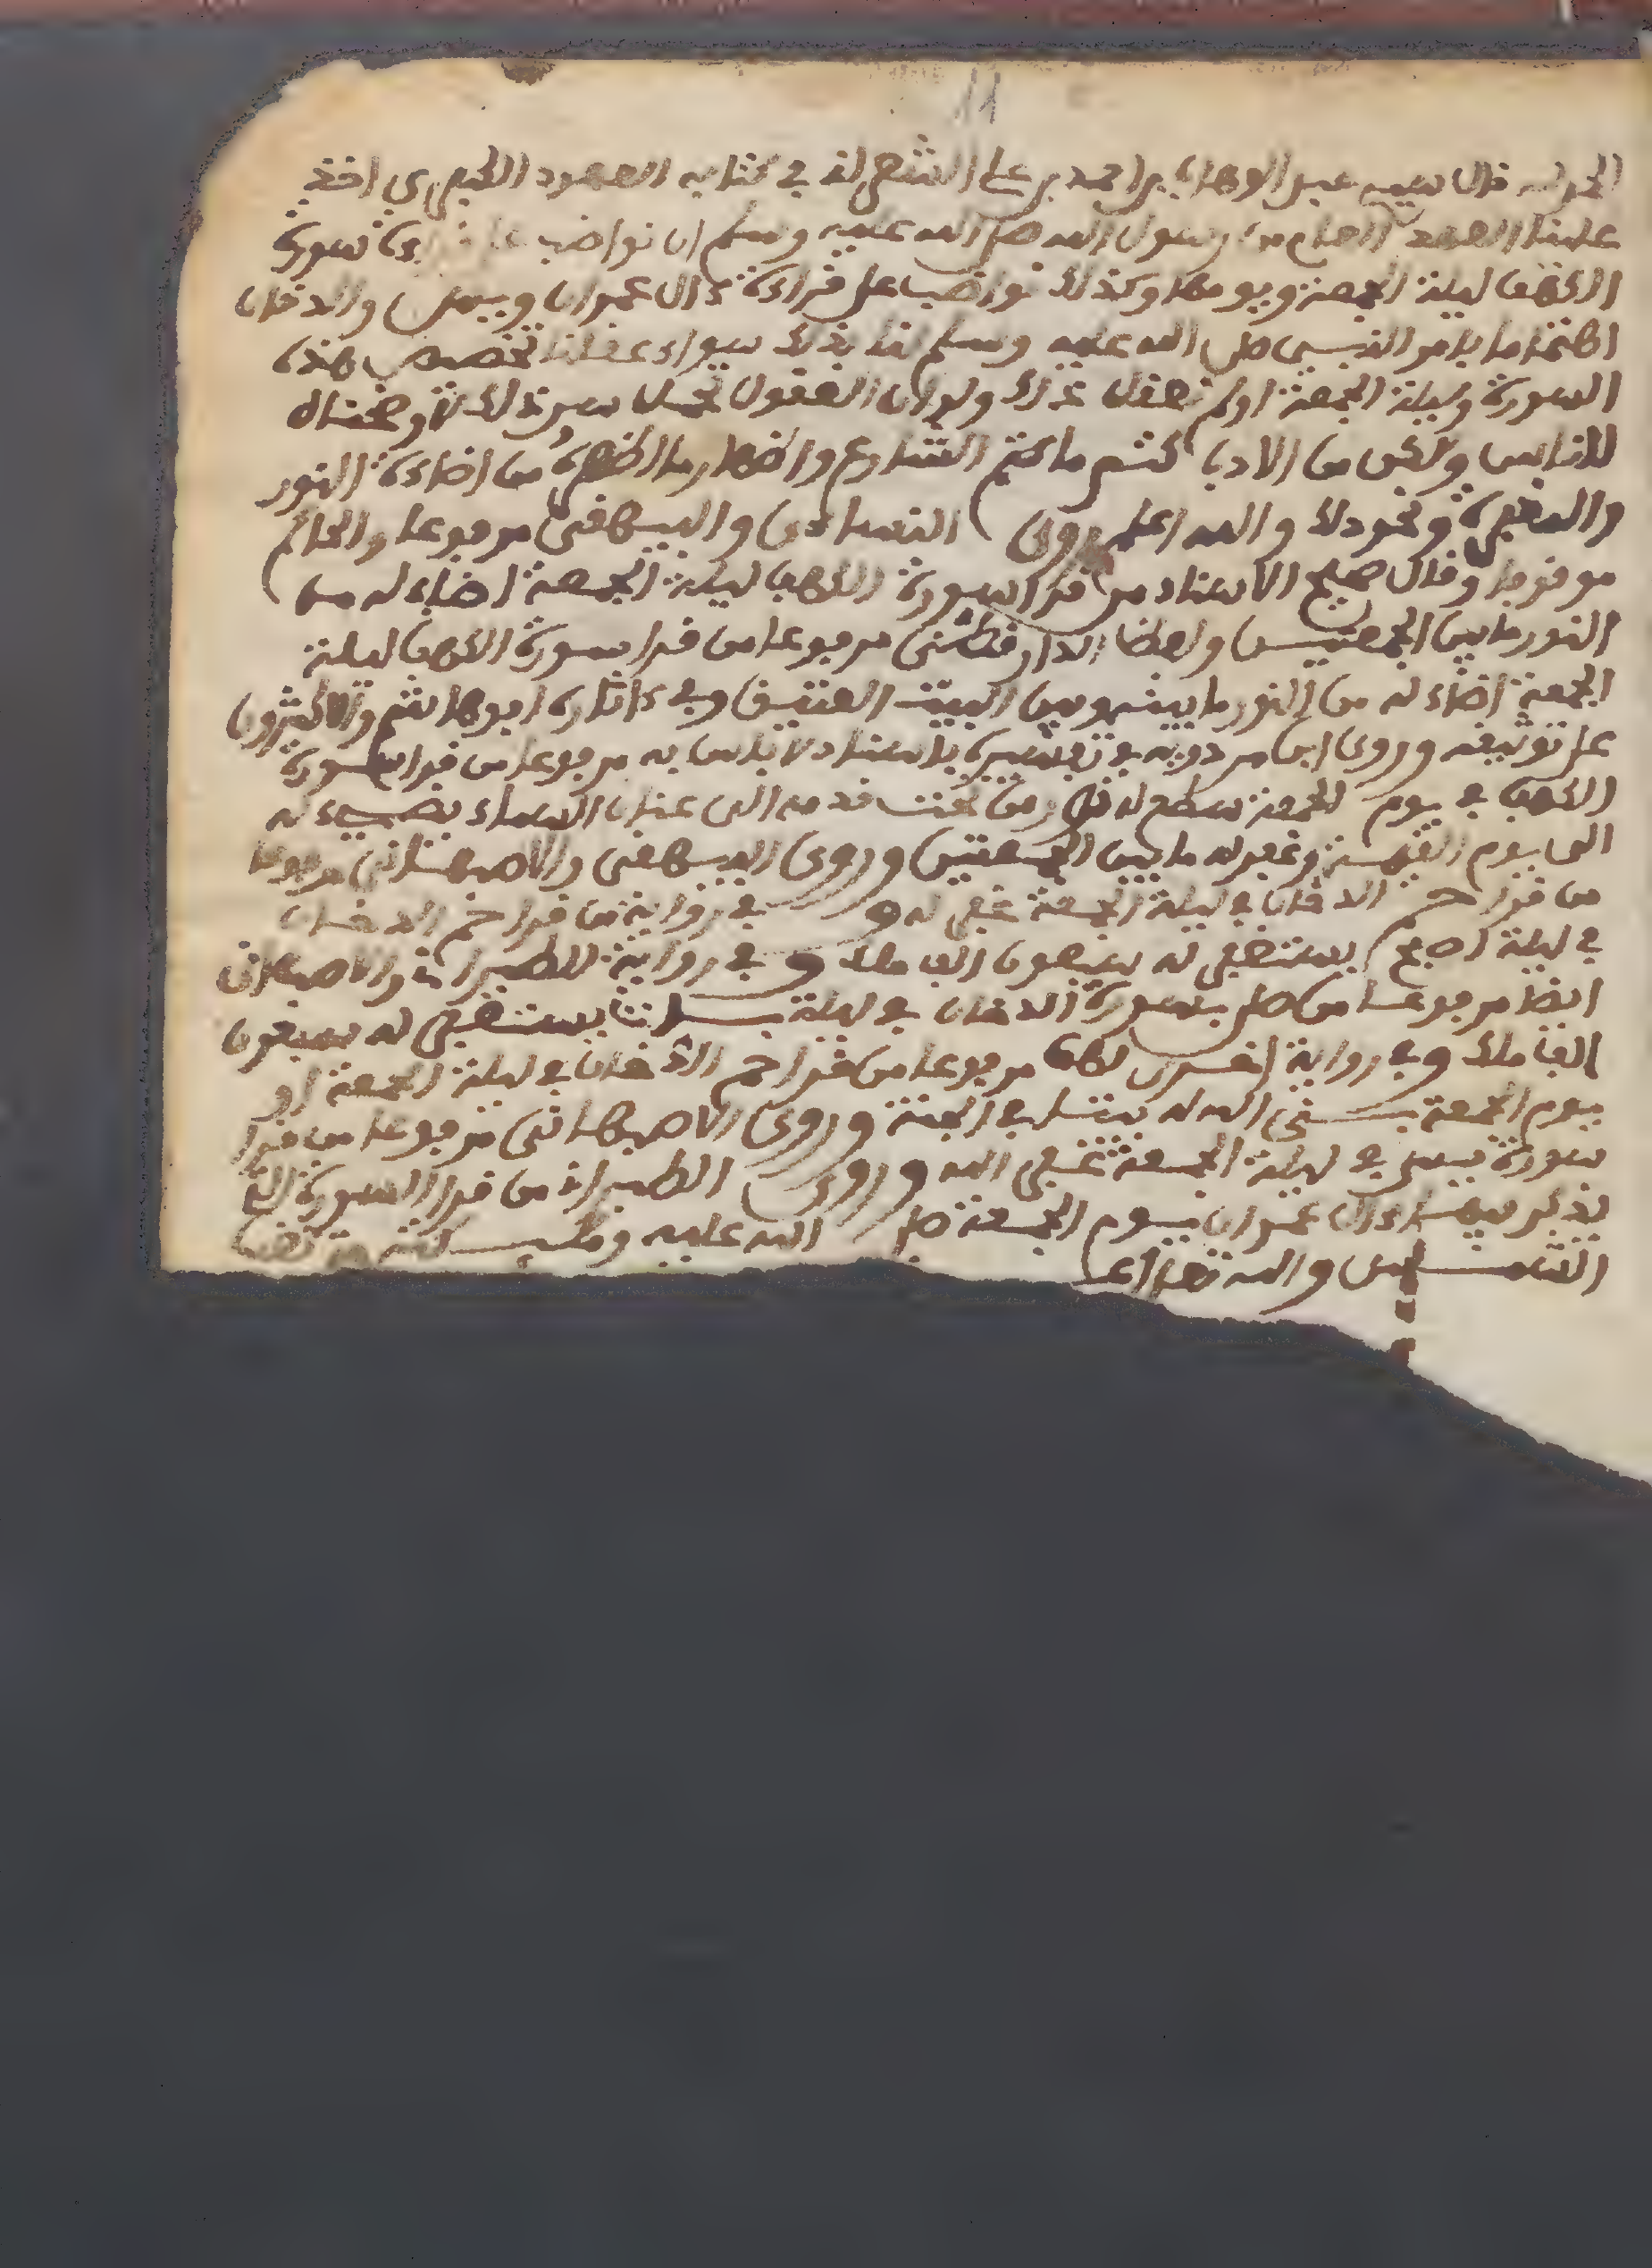 11
الحمد لله قال سيد عبد الوهاب بن احمد بن علي الشعراني في كتابه العهود الكبرى اخذ
علينا العهد العام من رسول الله صلى الله عليه وسلم ان نواضب على قراءة سورة
الكهف ليلة الجمعة ويومها وكذلك نواضب على قراءة ءال عمران ويس والدخان
اهتماما بامر النبي صلى الله عليه وسلم لنا بذلك سواء عقلنا تخصيص هذه
السورة وليلة الجمعة اولم نعقل ذلك ولو ان العقول تحمل سر ذلك لاوضحناه
للناس ولكن من الادب كتم ما كتم الشارع واضهار ما اضهره من اضاءة النور
والمغفرة ونحو ذلك والله اعلم روى النسائى والبيهقى مرفوعا والحاكم
موقوفا وقال صحيح الاسناد من قرا سورة الكهف ليلة الجمعة اضاء له من
النور ما بين الجمعتيـن ولفظ الدارقطنى مرفوعا من قرا سورة الكهف ليلة
الجمعة اضاء له من النور ما بينه وبين البيت العتيق وفي ءاثاره ابو هاشم والاكثرون
على توثيقه وروى ابن مردويه في تفسيره باسناد لا باس به مرفوعا من قرا سورة
الكهف في يوم الجمعة سطع له نور من تحت قدمه الى عنان السماء يضيء له
الى يوم القيمة وغفر له ما بين الجمعتين وروى البيهقى والاصبهانى مرفوعا
من قرا حم الدخان في ليلة الجمعة غفر له و في رواية من قرا حم الدخان
في ليلة اصبح يستغفر له سبعون الف ملك و في رواية للطبراني والاصبهاني
ايضا مرفوعا من صلى بسورة الدخان في ليلة بـات يستغفر له سبعون
الف ملك وفي رواية اخرى لهما مرفوعا من قرا حم الدخان في ليلة الجمعة او
يوم الجمعة بـنى الله له بيتا في الجنة وروى الاصبهانى مرفوعا من قرا
سورة يس في ليلة الجمعة غفر الله وروى الطبراني من قرا السورة التي
يذكر فيها ءال عمران يوم الجمعة صلى الله عليه وملـيـكته حتى تغيب
الشمـس والله تعلى اعـ